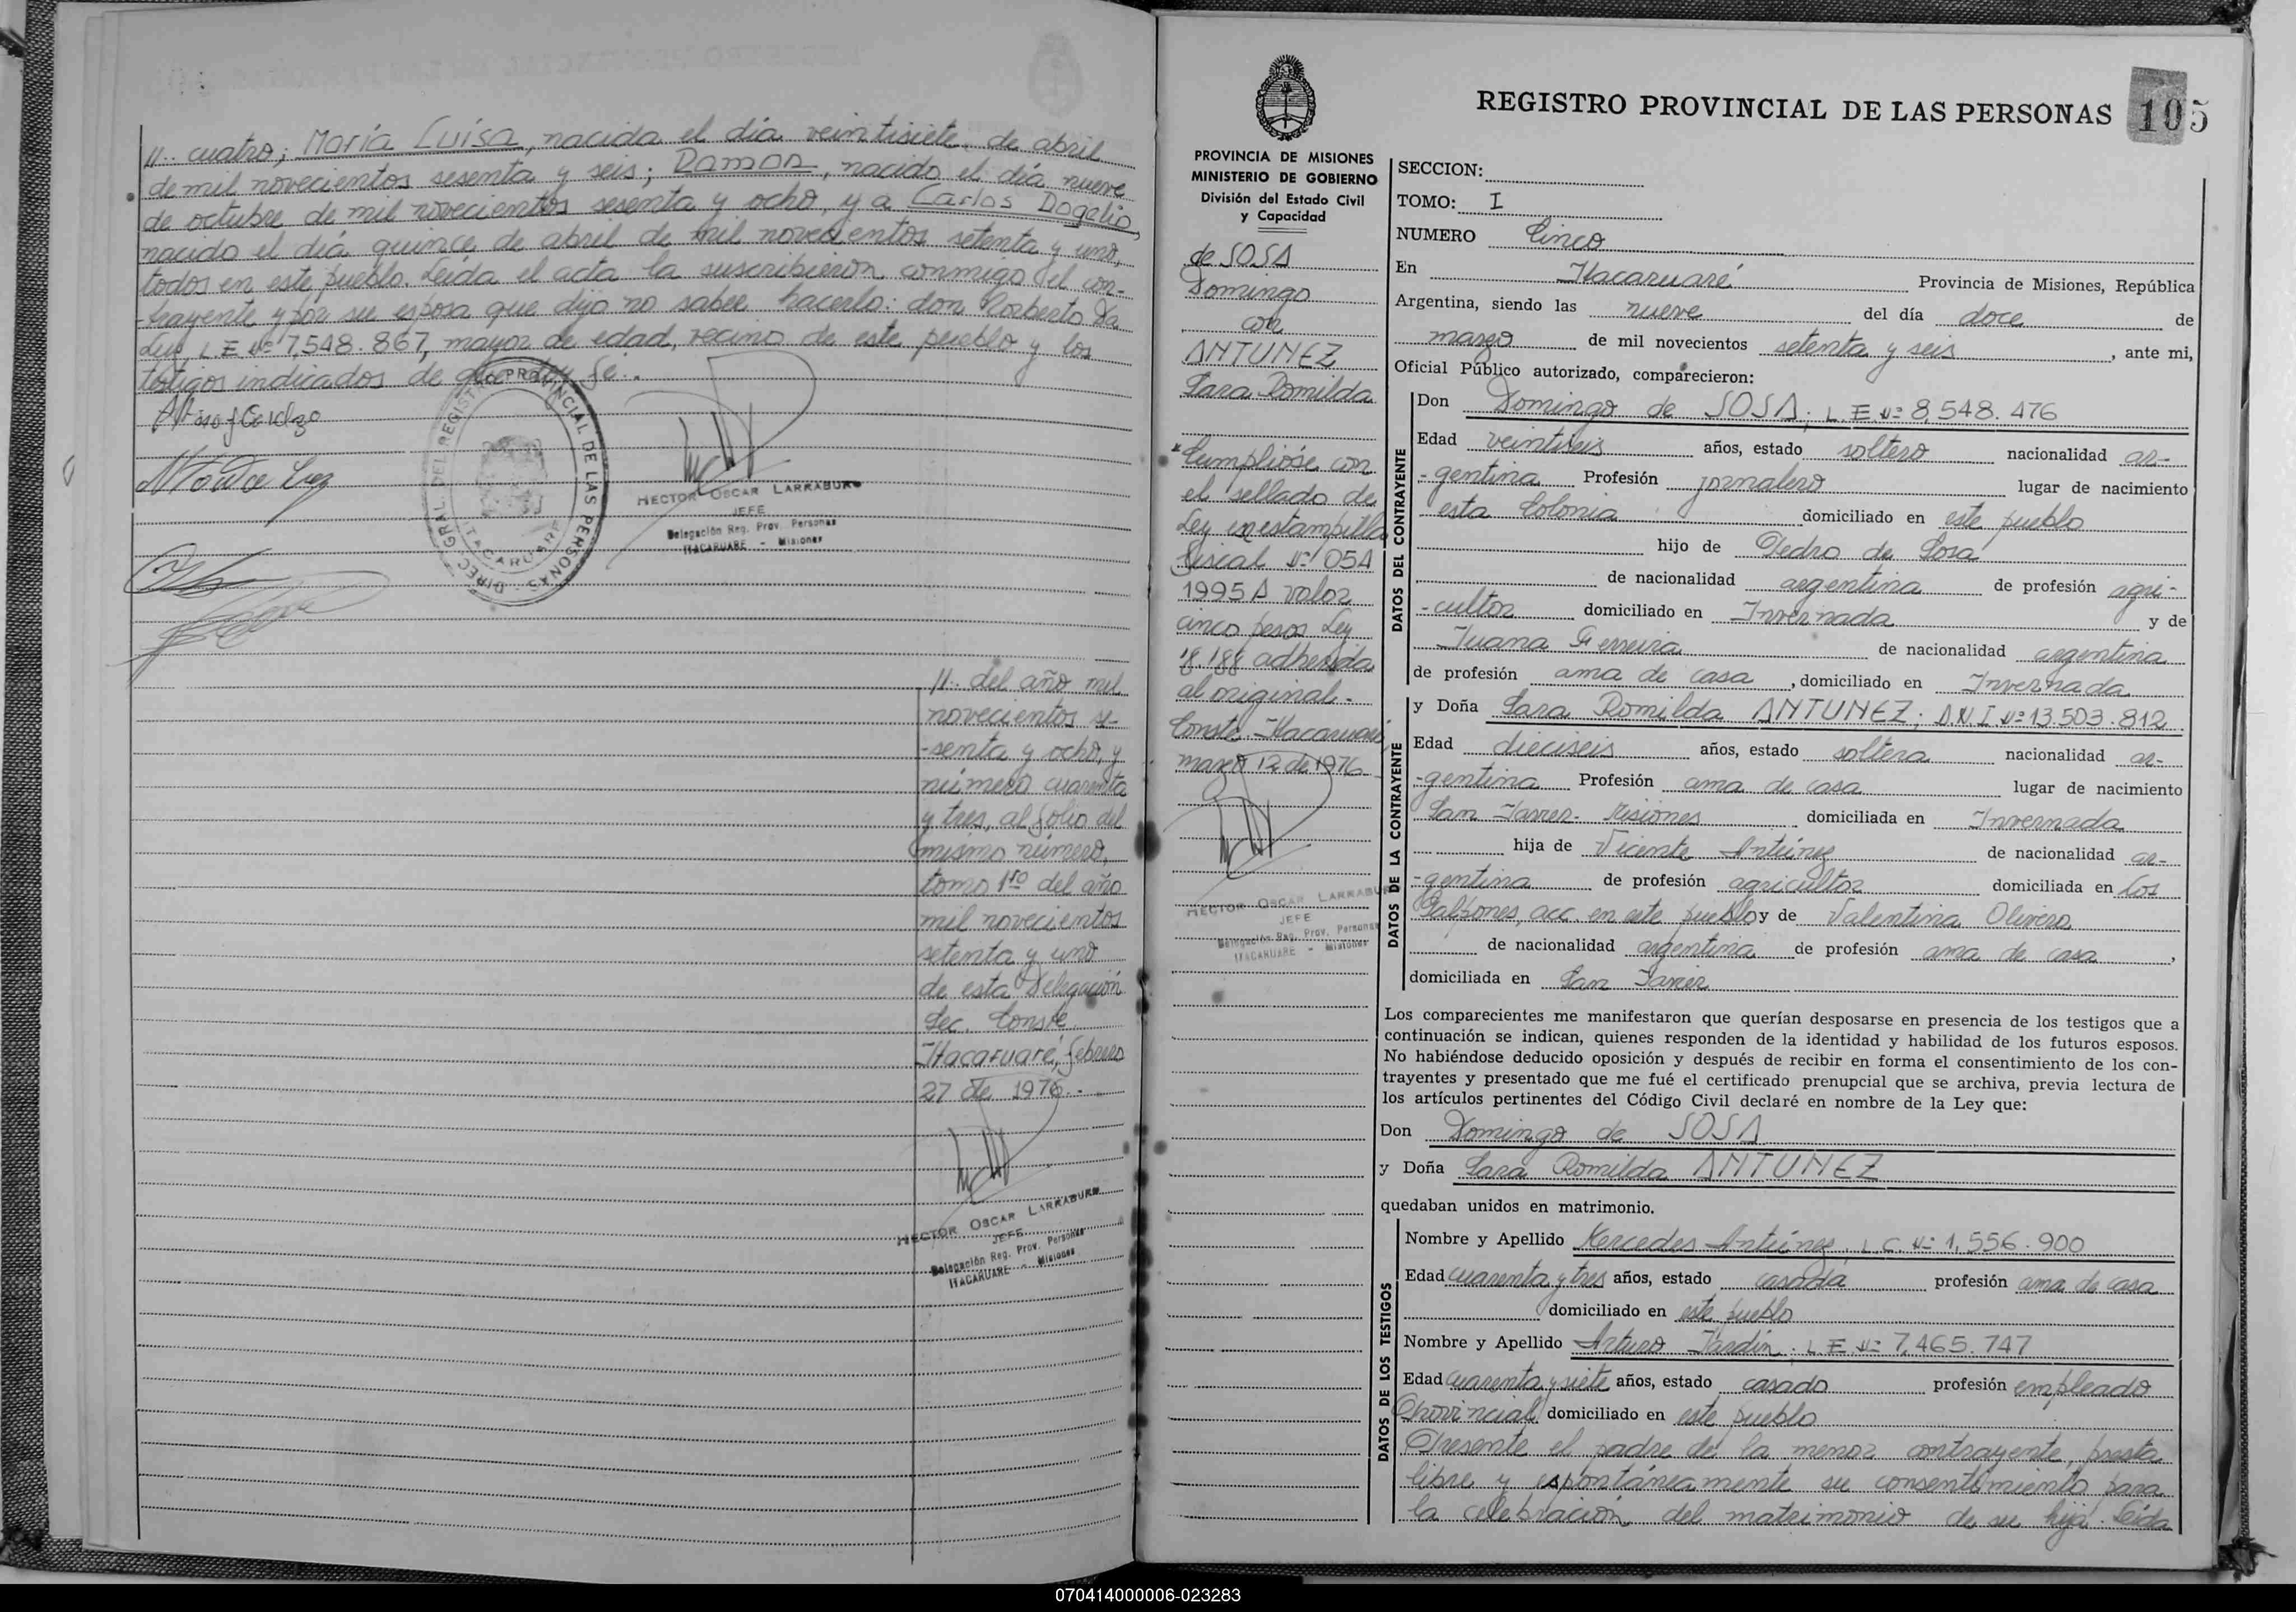 //.. cuatro; María Luisa, nacida el día veintisiete de abril
de mil novecientos sesenta y seis; Ramon, nacido el día nueve
de octubre de mil novecientos sesenta y ocho, y a Carlos Rogelio,
nacido el día quince de abril de mil novecientos setenta y uno,
todos en este pueblo. Leída el acta la suscribieron conmigo el con-
-trayente y por su esposa que dijo no saber hacerlo: don Norberto Da
Luz, L.E. Nº 7.548.867, mayor de edad, vecino de este pueblo y los
testigos indicados de que doy fe..
DIREC. GRAL. DEL REGISTRO PROVINCIAL DE LAS PERSONAS
ITACARUARE
HECTOR OSCAR LARRABURU
JEFE
Delegación Reg. Prov. Personas
ITACARUARE - Misiones
//.. del año mil
novecientos se-
-senta y ocho, y
número cuarenta
y tres, al folio del
mismo número,
tomo 1ro del año
mil novecientos
setenta y uno
de esta Delegación
Sec. Conste
Itacaruaré, febrero
27 de 1976.-
HECTOR OSCAR LARRABURU
JEFE
Delegación Reg. Prov. Personas
ITACARUARE - Misiones
REGISTRO PROVINCIAL DE LAS PERSONAS 105
PROVINCIA DE MISIONES
MINISTERIO DE GOBIERNO
División del Estado Civil
y Capacidad
de SOSA
Domingo
con
ANTUNEZ
Sara Romilda
*Cumplióse con
el sellado de
Ley en estampilla
fiscal Nº 054
1995 A valor
cinco pesos Ley
18.188 adherida
al original.-
Conste. Itacaruaré
marzo 12 de 1976
HECTOR OSCAR LARRABURU
JEFE
Delegación Reg. Prov. Personas
ITACARUARE - Misiones
SECCION:
TOMO: I
NUMERO Cinco
En Itacaruaré Provincia de Misiones, República
Argentina, siendo las nueve del día doce de
marzo de mil novecientos setenta y seis, ante mi,
Oficial Público autorizado, comparecieron:
DATOS DEL CONTRAYENTE
Don Domingo de SOSA; L.E. Nº 8.548.476
Edad veintiseis años, estado soltero nacionalidad ar-
-gentina Profesión jornalero lugar de nacimiento
esta Colonia domiciliado en este pueblo
hijo de Pedro de Sosa
de nacionalidad argentina de profesión agri-
-cultor domiciliado en Invernada y de
Juana Ferreira de nacionalidad argentina
de profesión ama de casa, domiciliado en Invernada
DATOS DE LA CONTRAYENTE
y Doña Sara Romilda ANTUNEZ; D.N.I. Nº 13.503.812
Edad dieciseis años, estado soltera nacionalidad ar-
-gentina Profesión ama de casa lugar de nacimiento
San Javier- Misiones domiciliada en Invernada
hija de Vicente Antúnez de nacionalidad ar-
-gentina de profesión agricultor domiciliada en Los
Galpones, acc. en este pueblo y de Valentina Olivera
de nacionalidad argentina de profesión ama de casa,
domiciliada en San Javier
Los comparecientes me manifestaron que querían desposarse en presencia de los testigos que a
continuación se indican, quienes responden de la identidad y habilidad de los futuros esposos.
No habiéndose deducido oposición y después de recibir en forma el consentimiento de los con-
trayentes y presentado que me fué el certificado prenupcial que se archiva, previa lectura de
los artículos pertinentes del Código Civil declaré en nombre de la Ley que:
Don Domingo de SOSA
y Doña Sara Romilda ANTUNEZ
quedaban unidos en matrimonio.
DATOS DE LOS TESTIGOS
Nombre y Apellido Mercedes Antúnez, L.C. Nº 1.556.900
Edad cuarenta y tres años, estado casada profesión ama de casa
domiciliado en este pueblo
Nombre y Apellido Arturo Jardín; L.E. Nº 7.465.747
Edad cuarenta y siete años, estado casado profesión empleado
Provincial domiciliado en este pueblo
Presente el padre de la menor contrayente, presta
libre y espontáneamente su consentimiento para
la celebración del matrimonio de su hija. Leída
070414000006-023283